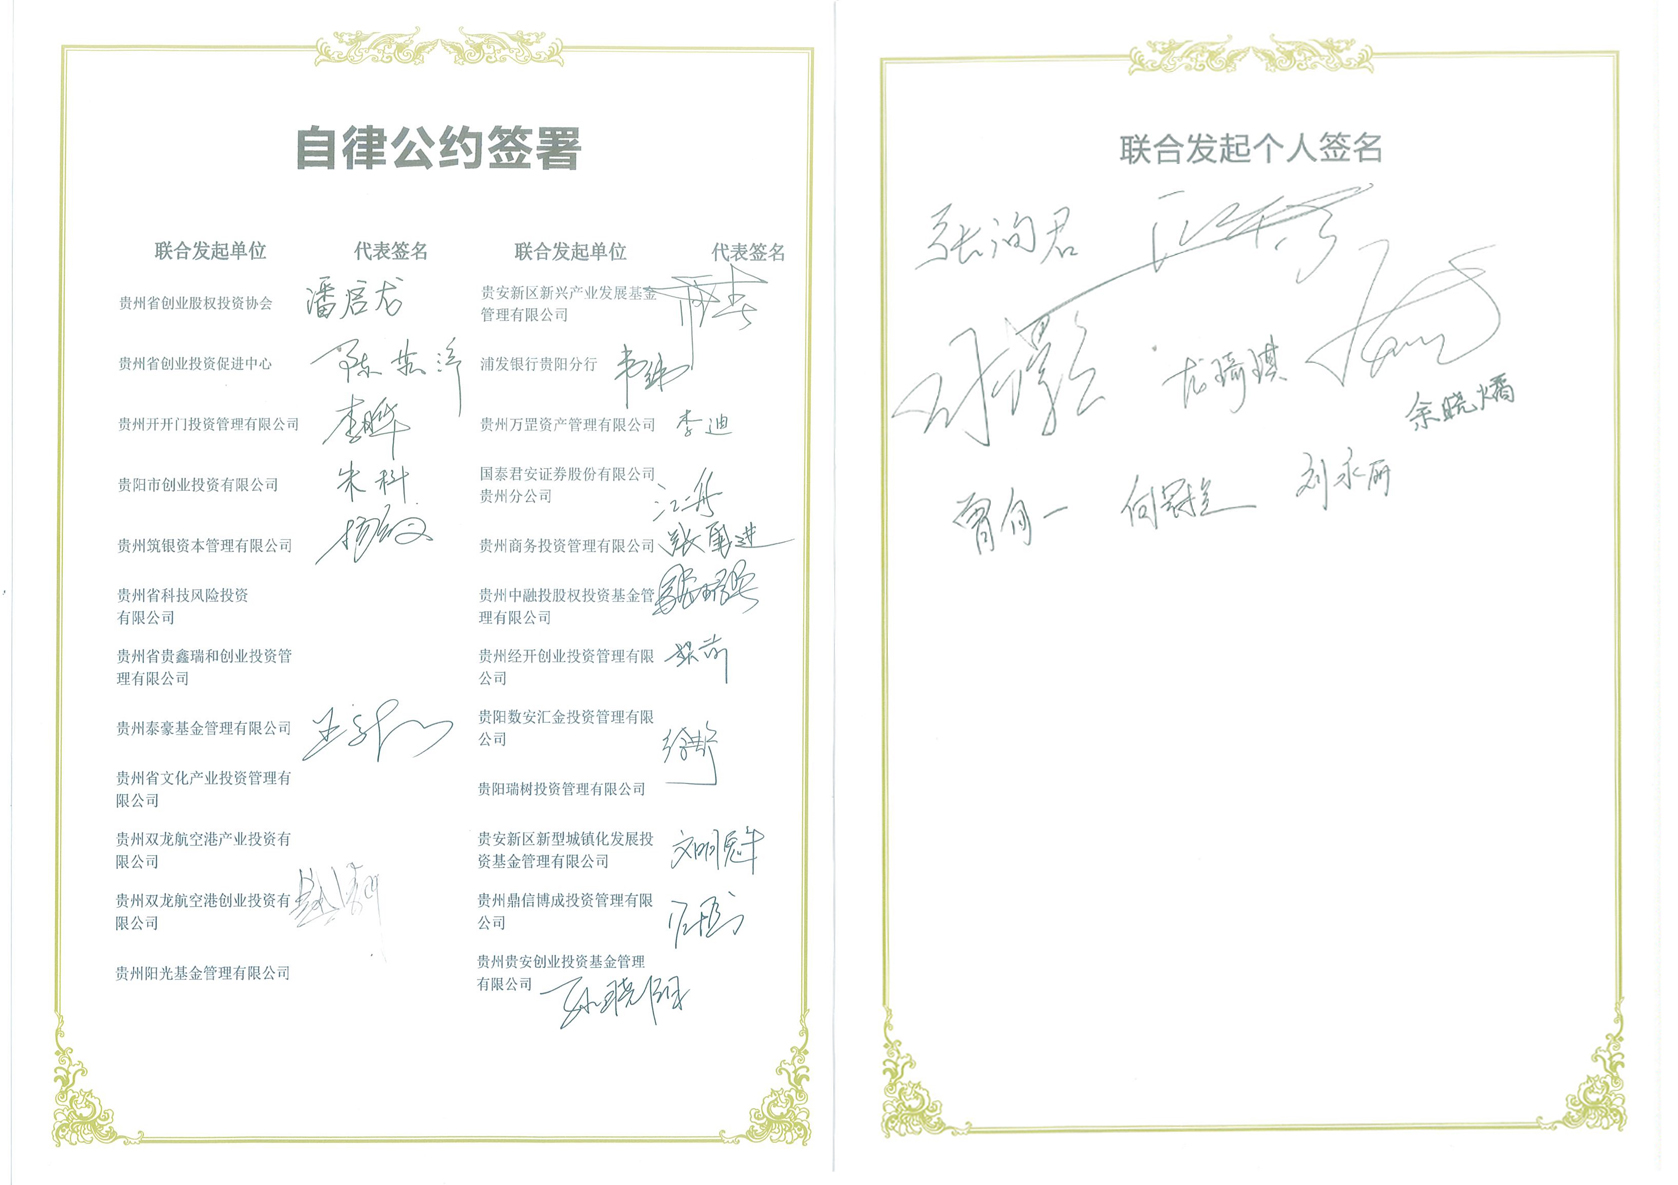 自律公约签署
联合发起单位 代表签名 联合发起单位 代表签名
贵州省创业股权投资协会 潘启龙
贵州省创业投资促进中心
贵州开开门投资管理有限公司 李晔
贵阳市创业投资有限公司 朱科
贵州筑银资本管理有限公司
贵州省科技风险投资
有限公司
贵州省贵鑫瑞和创业投资管
理有限公司
贵州泰豪基金管理有限公司
贵州省文化产业投资管理有
限公司
贵州双龙航空港产业投资有
限公司
贵州双龙航空港创业投资有
限公司
贵州阳光基金管理有限公司
贵安新区新兴产业发展基金
管理有限公司
浦发银行贵阳分行 韦炜
贵州万罡资产管理有限公司 李迪
国泰君安证券股份有限公司
贵州分公司
贵州商务投资管理有限公司
贵州中融投股权投资基金管
理有限公司
贵州经开创业投资管理有限
公司
贵阳数安汇金投资管理有限
公司
贵阳瑞树投资管理有限公司
贵安新区新型城镇化发展投
资基金管理有限公司
贵州鼎信博成投资管理有限
公司
贵州贵安创业投资基金管理
有限公司 孙晓阳
联合发起个人签名
张洵君
尤琦琪
余晓燏
曾自一 刘永丽